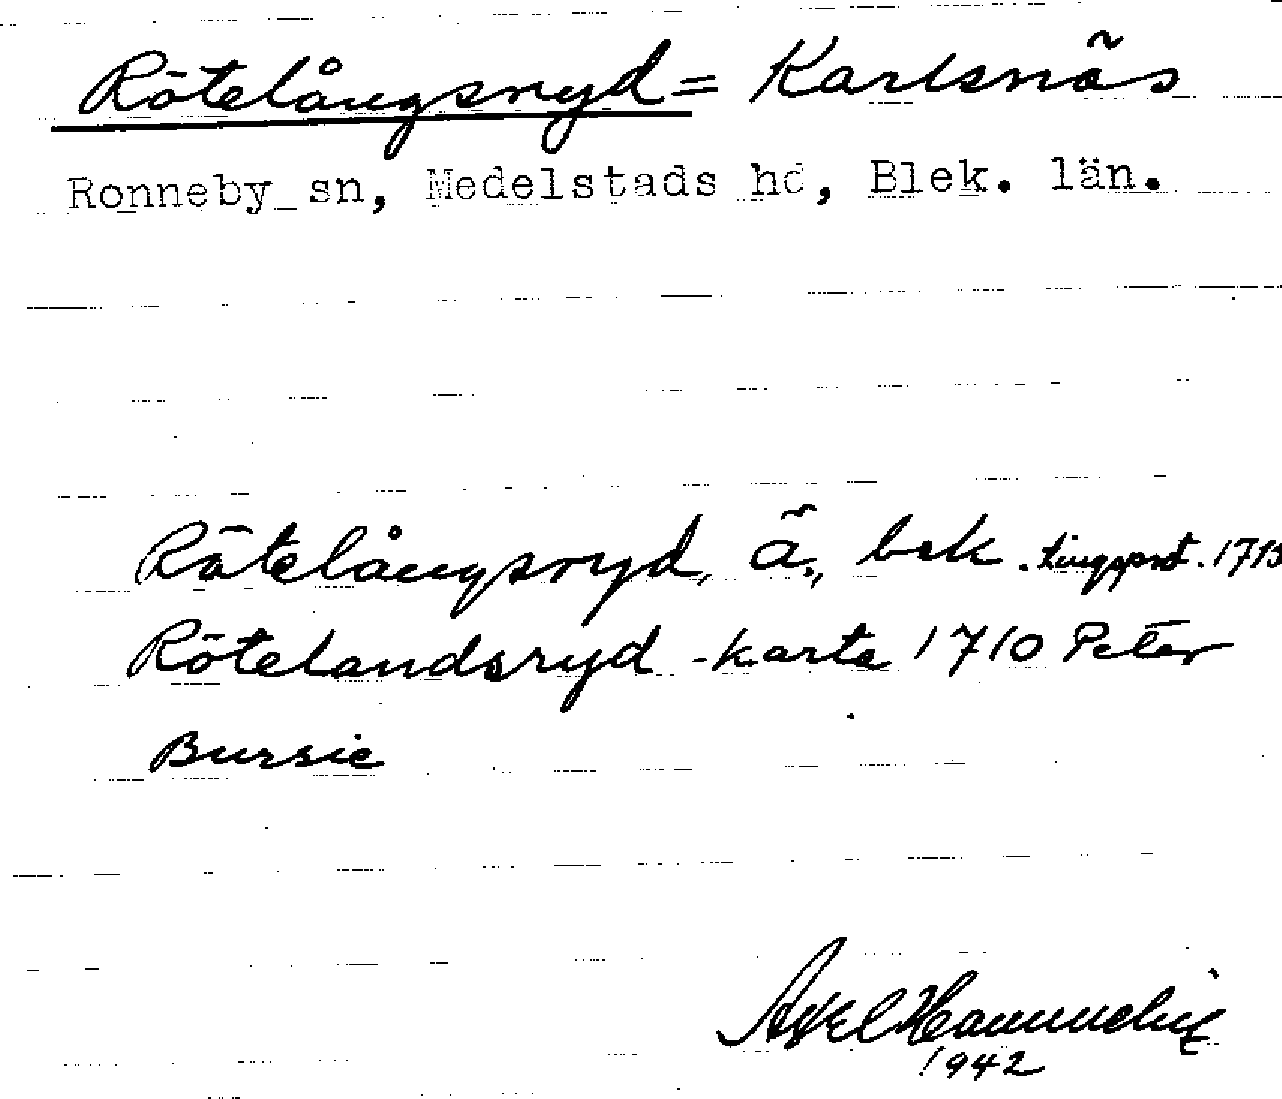 Rötelångsryd = Karlsnäs
Ronneby sn, Medelstads hd, Blek. län.
Rötelångsryd, Ä., bek. tingsprot. 1713
Rötelandsryd - karta 1710 Peter
Bursie
Axel Hammelin
1942